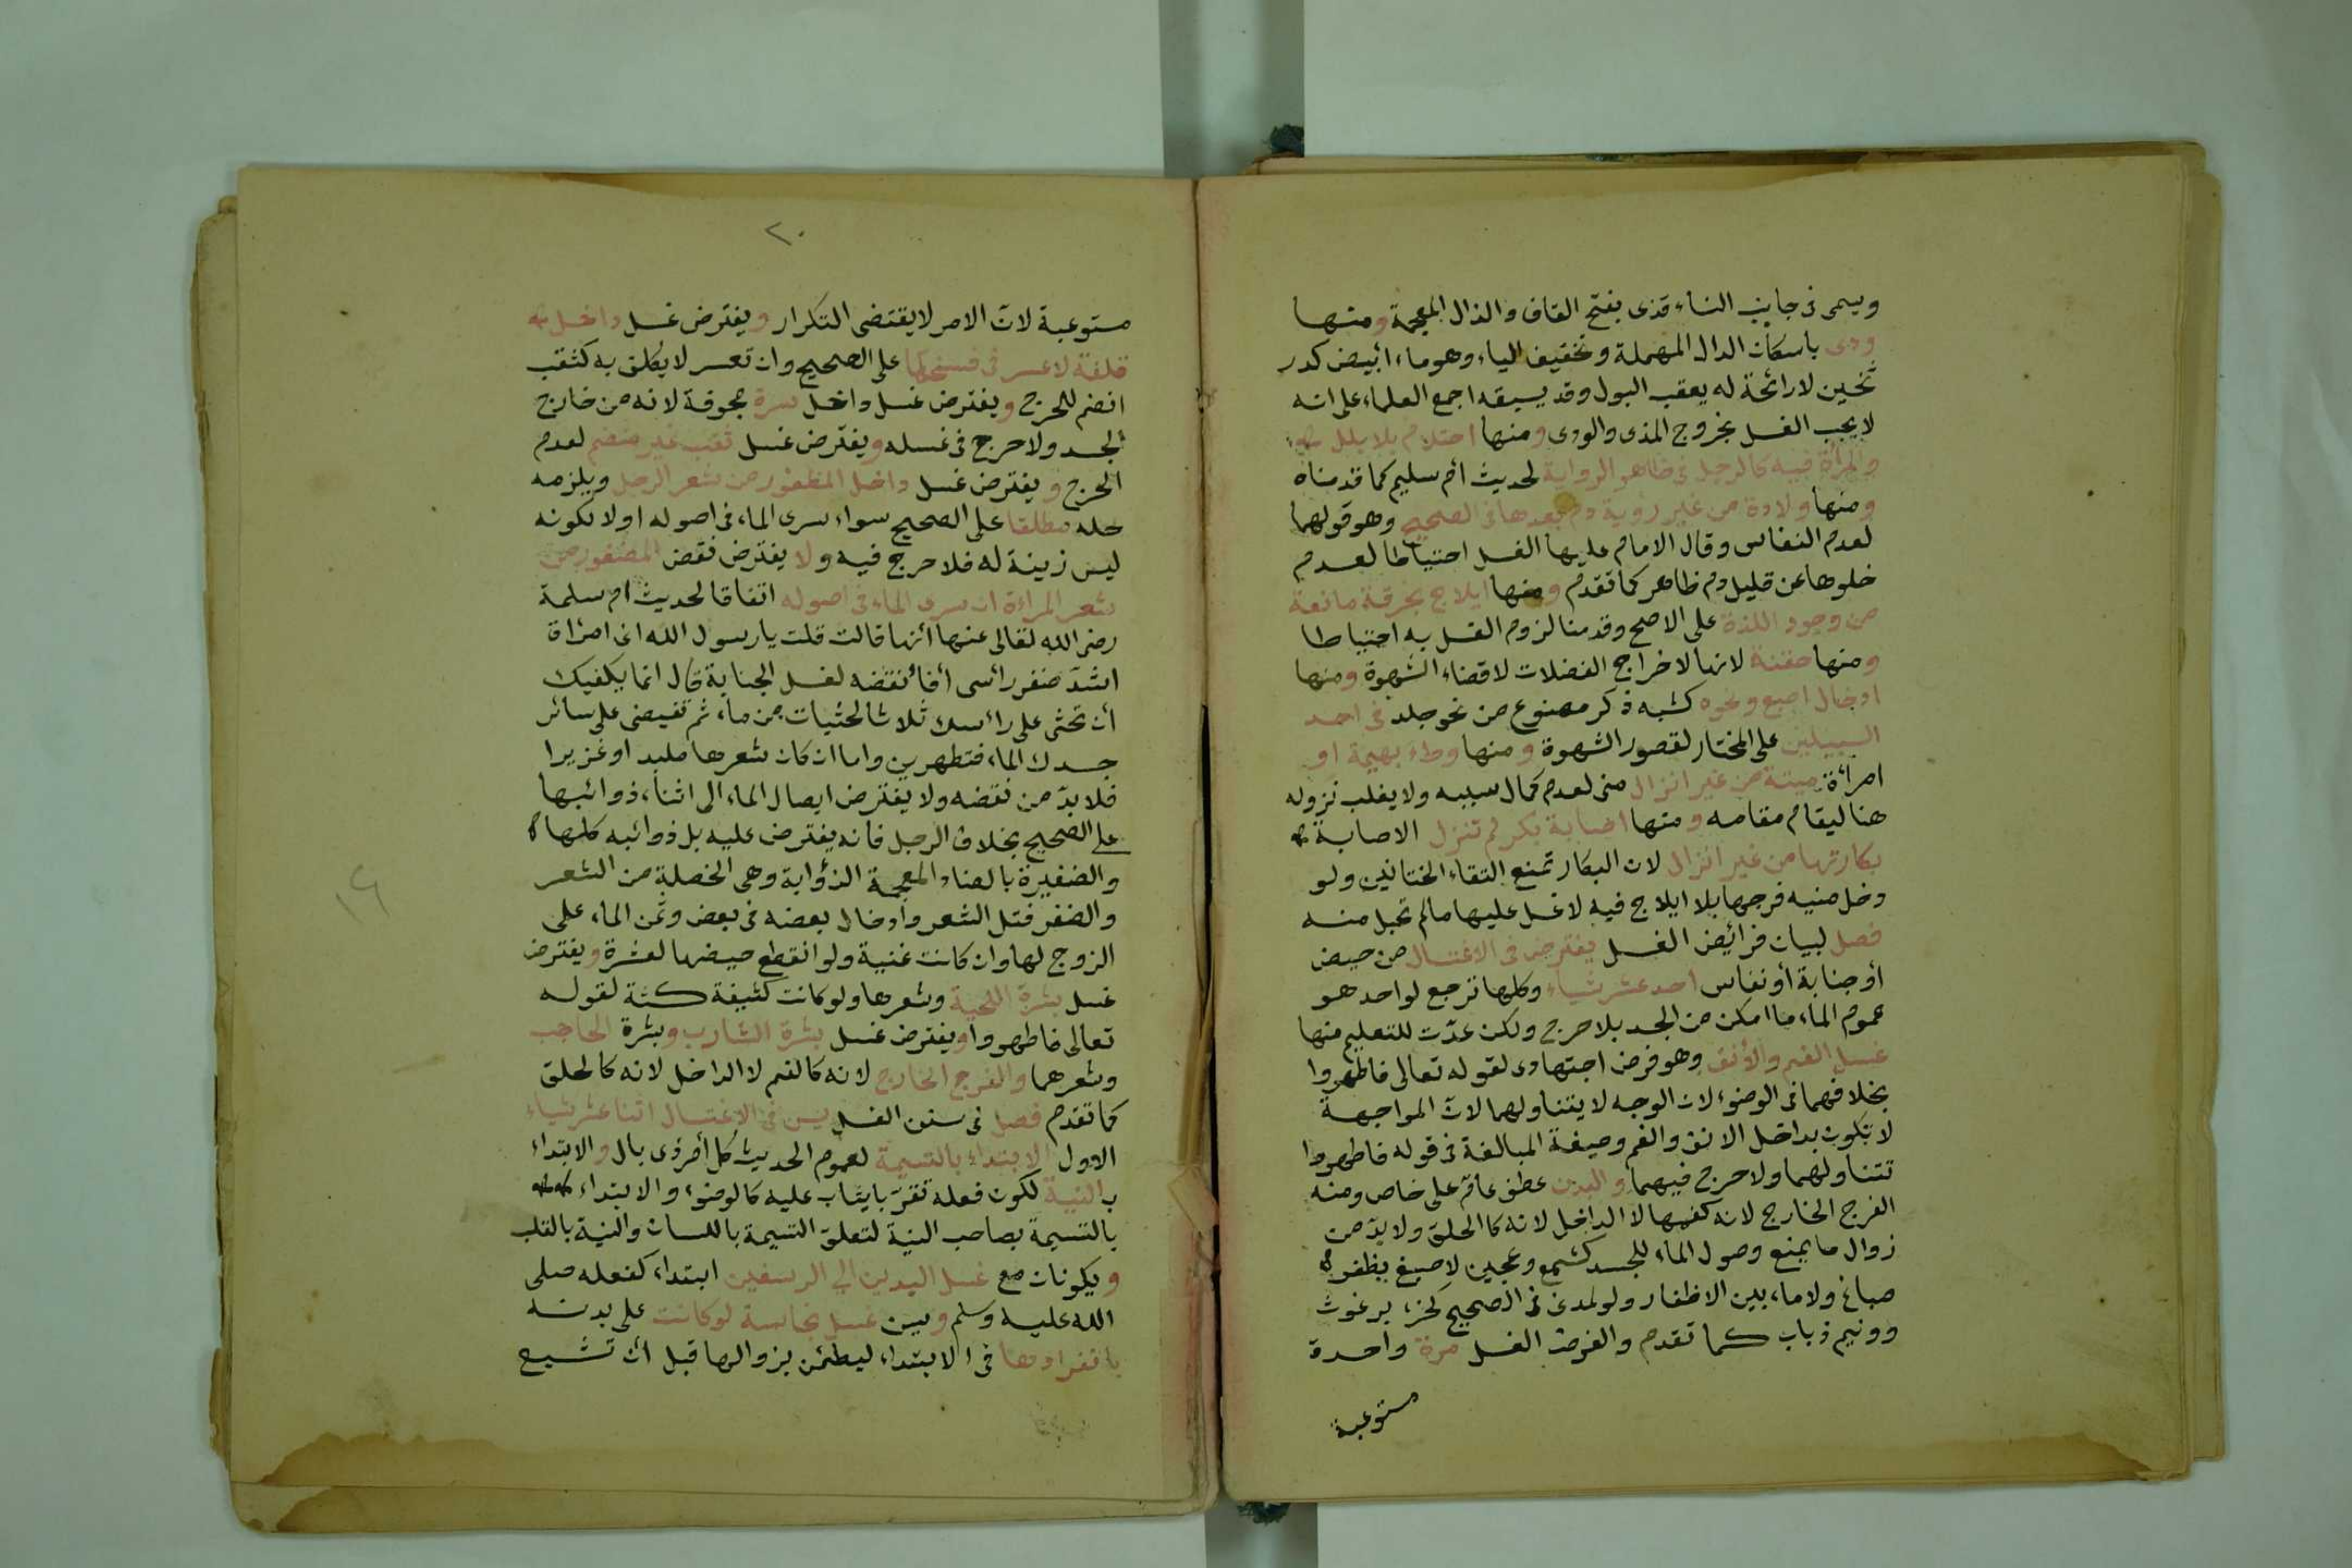 ويسمى في جانب النساء قذى بفتح القاف والذال المعجمة ومنها
ودى باسكان الدال المهملة وتخفيف الياء وهو ماء ابيض كدر
ثخين لا رائحة له يعقب البول وقد يسبقه اجمع العلماء على انه
لا يجب الغسل بخروج المذى والودى ومنها احتلام بلا بلل
والمرأة فيه كالرجل في ظاهر الرواية لحديث أم سليم كما قدمناه
ومنها ولادة من غير رؤية دم بعدها في الصحيح وهو قولهما
لعدم النفاس وقال الامام عليها الغسل احتياطا لعدم
خلوها عن قليل دم ظاهر كما تقدم ومنها ايلاج بخرقة مانعة
من وجود اللذة على الاصح وقدمنا لزوم الغسل به احتياطا
ومنها حقنة لانها لاخراج الفضلات لا قضاء الشهوة ومنها
ادخال اصبع ونحوه كشبه ذكر مصنوع من نحو جلد في احد
السبيلين على المختار لقصور الشهوة ومنها وطء بهيمة او
امرأة ميتة من غير انزال منى لعدم كمال سببه ولا يغلب نزوله
هنا ليقام مقامه ومنها اصابة بكر لم تزل الاصابة
بكارتها من غير انزال لان البكار تمنع التقاء الختانين ولو
دخل منيه فرجها بلا ايلاج فيه لا غسل عليها ما لم تحبل منه
فصل لبيان فرائض الغسل يفترض في الاغتسال من حيض
أو جنابة أو نفاس احد عشر شياء وكلها ترجع لواحد هو
عموم الماء ما امكن من الجسد بلا حرج ولكن عدّت للتعليم منها
غسل الفم والأنف وهو فرض اجتهادى لقوله تعالى فاطهروا
بخلافهما في الوضوء لان الوجه لا يتناولهما لانّ المواجهة
لا تكون بداخل الانف والفم وصيغة المبالغة في قوله فاطهروا
تتناولهما ولا حرج فيهما والبدن عطف عامّ على خاص ومنه
الفرج الخارج لانه كفمها لا الداخل لانه كالحلق ولا بدّ من
زوال ما يمنع وصول الماء للجسد كشمع وعجين لا صبغ بظفر
صباغ ولا ما بين الاظفار ولو لمدنى في الصحيح كخرء برغوث
وونيم ذباب كما تقدم والفرض الغسل مرة واحدة
مستوعبة
٢٠
مستوعبة لانّ الامر لا يقتضى التكرار ويفترض غسل داخل
قلفة لا عسر في فسخها على الصحيح وان تعسر لا يكلف به كثقب
انضم للحرج ويفترض غسل داخل سرة مجوفة لانه من خارج
الجسد ولا حرج في غسله ويفترض غسل ثقب غير منضم لعدم
الحرج ويفترض غسل داخل المظفور من شعر الرجل ويلزمه
حله مطلقا على الصحيح سواء سرى الماء في اصوله اولا لكونه
ليس زينة له فلا حرج فيه ولا يفترض نقض المضفور من
شعر المراءة ان سرى الماء في اصوله اتفاقا لحديث ام سلمة
رضى الله تعالى عنها أنها قالت قلت يا رسول الله انى امرأة
اشدّ ضفر رأسى أفأنقضه لغسل الجنابة قال انما يكفيك
أن تحثى على رأسك ثلاث حثيات من ماء ثم تفيضى على سائر
جسدك الماء فتطهرين واما ان كان شعرها ملبدا او غزيرا
فلا بدّ من نقضه ولا يفترض ايصال الماء الى اثناء ذوائبها
على الصحيح بخلاف الرجل فانه يفترض عليه بل ذوائبه كلها
والضفيرة بالضاء المعجمة الذؤابة وهى الخصلة من الشعر
والضفر فتل الشعر وأدخال بعضه في بعض وثمن الماء على
الزوج لها وان كانت غنية ولو انقطع حيضها لعشرة ويفترض
غسل بشرة اللحية وشعرها ولو كانت كثيفة كثة لقوله
تعالى فاطهروا ويفترض غسل بشرة الشارب وبشرة الحاجب
وشعرهما والفرج الخارج لانه كالفم لا الداخل لانه كالحلق
كما تقدم فصل في سنن الغسل يسن في الاغتسال اثنا عشر شياء
الاول الابتداء بالتسمية لعموم الحديث كل أمر ذى بال والابتداء
بالنية لكون فعله تقرّبا يثاب عليه كالوضوء والابتداء
بالتسمية يصاحب النية لتعلق التسمية باللسان والنية بالقلب
ويكونان مع غسل اليدين الى الرسغين ابتداء كفعله صلى
الله عليه وسلم ويسن غسل نجاسة لو كانت على بدنه
بانفرادها في الابتداء ليطمئن بزوالها قبل أن تشيع